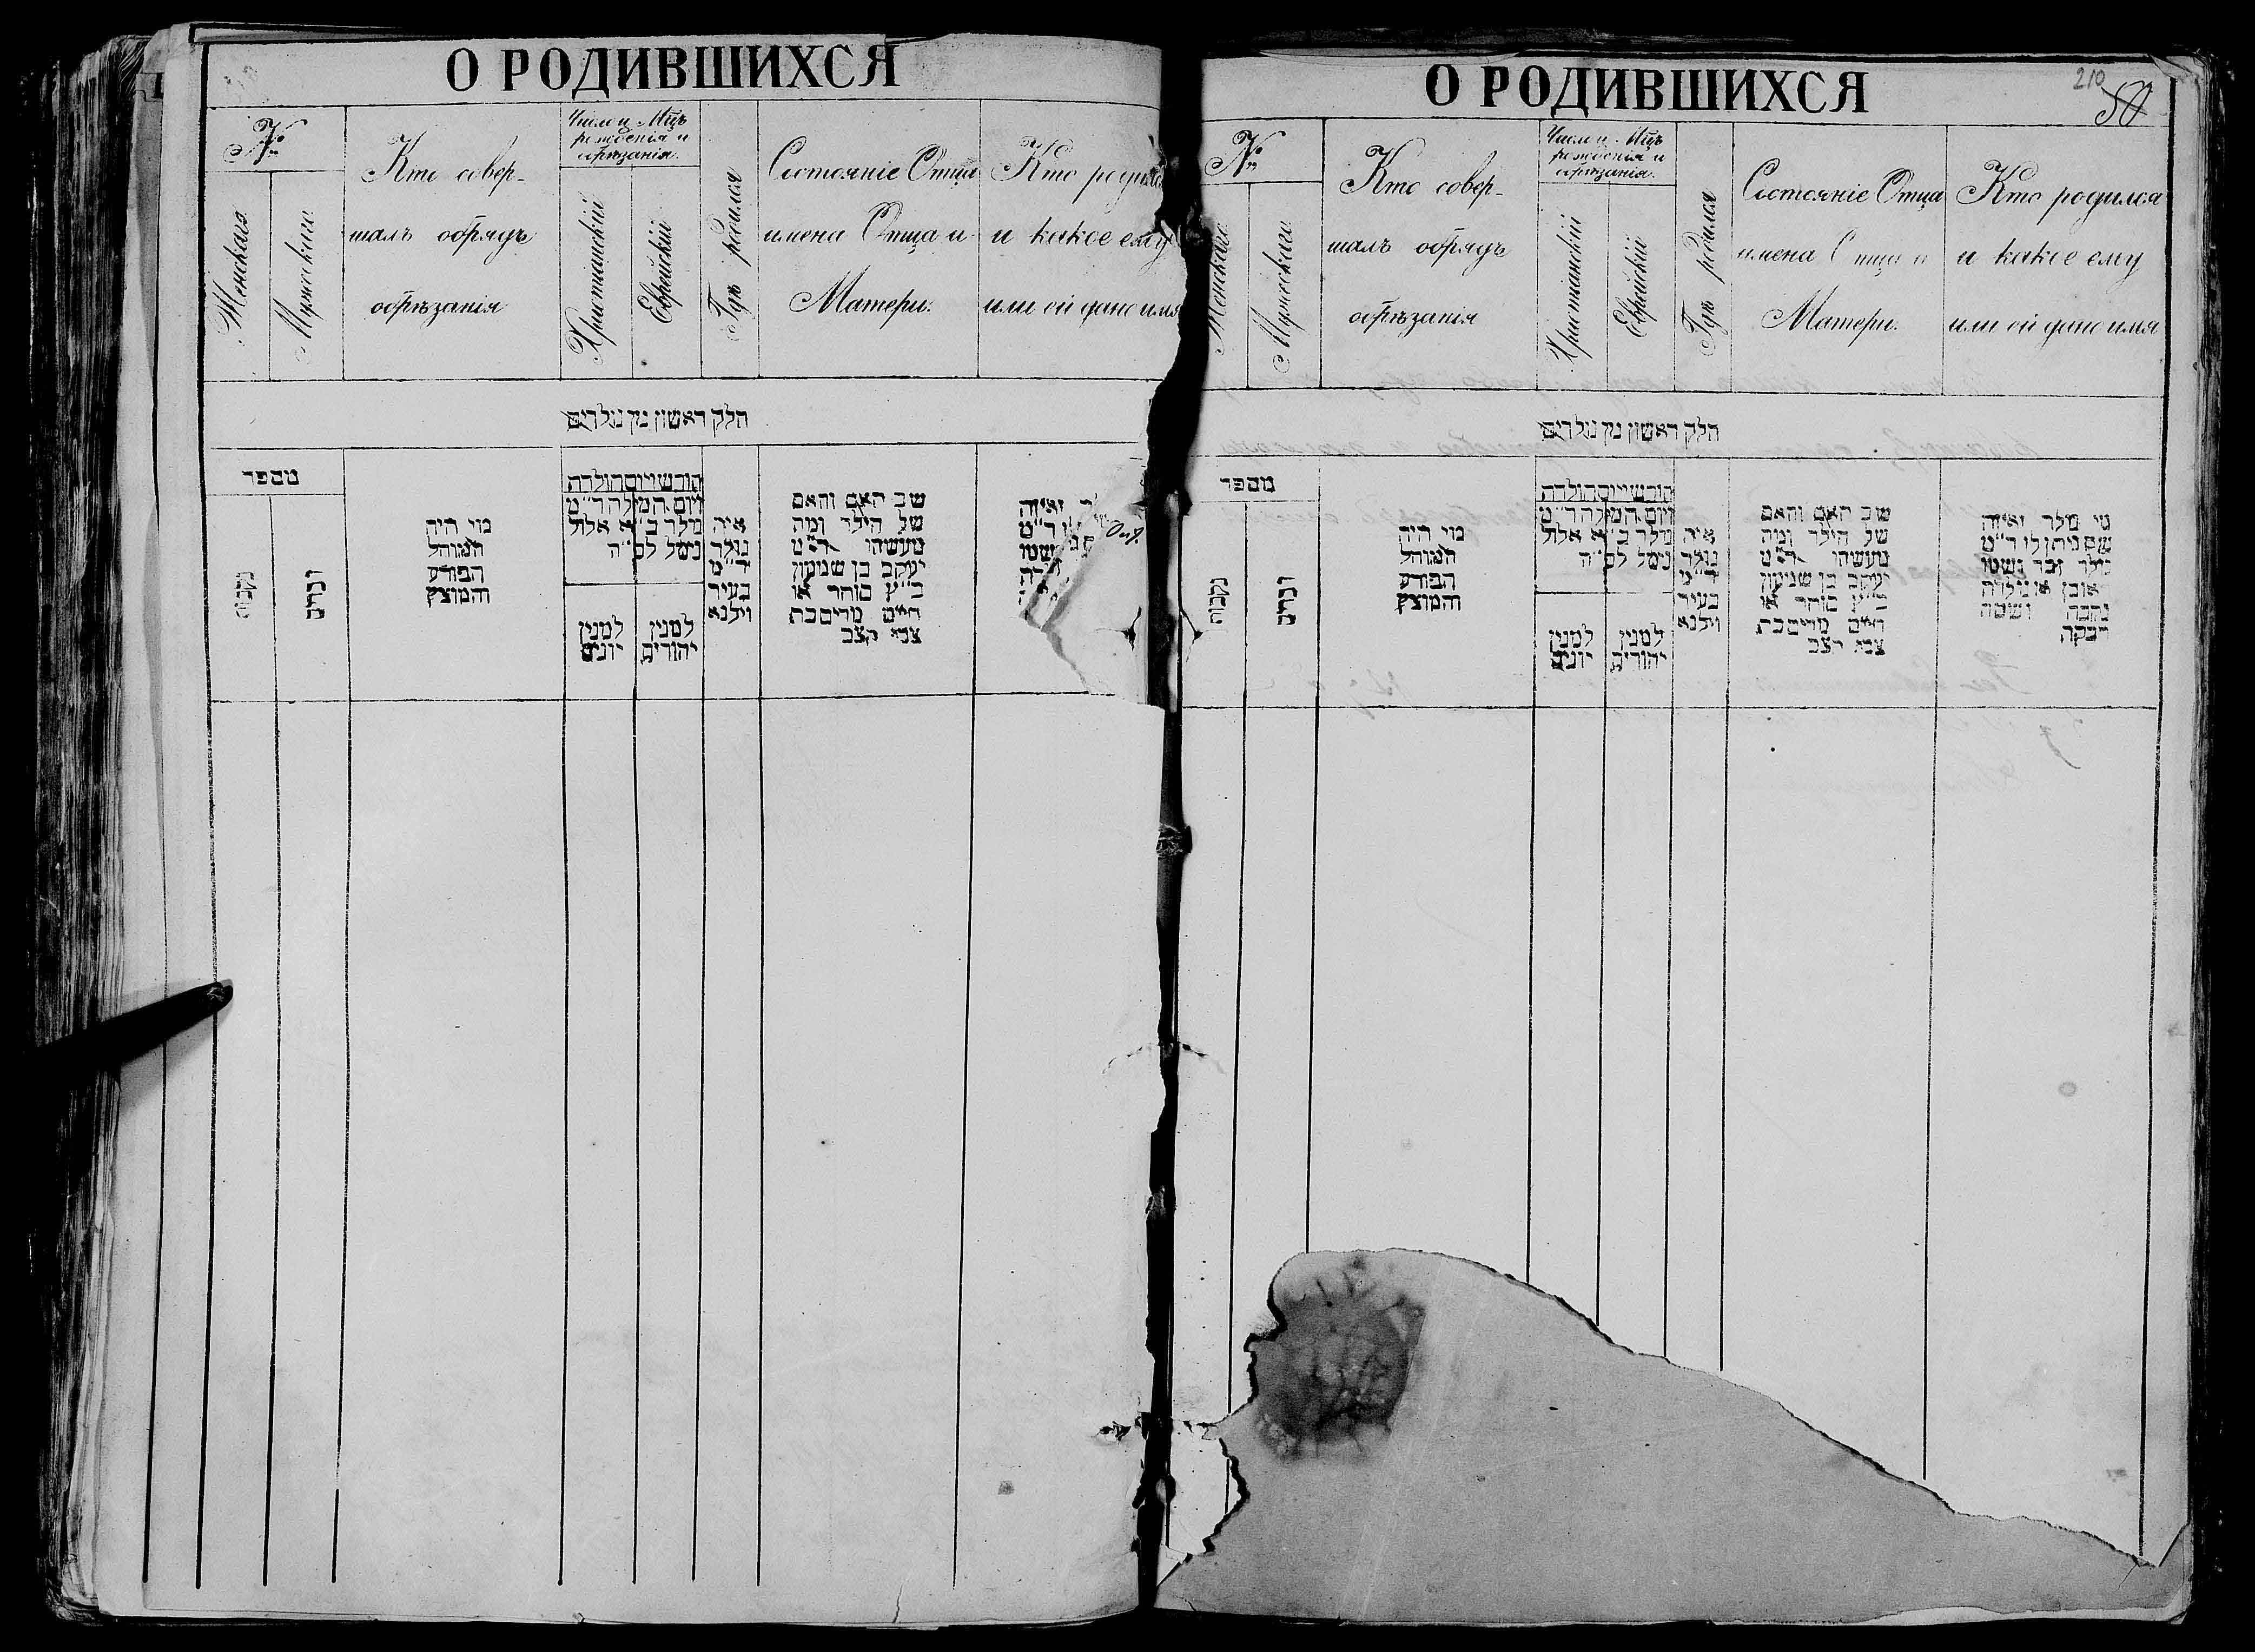 О РОДИВШИХСЯ
№
Женскаго
Мужескаго
Кто совер-
шалъ обрядъ
обрѣзанія
Число и Мцъ
рожденія и
обрѣзанія.
Христіанскій
Еврейскій
Гдѣ родился
Состояніе Отца
имена Отца и
Матери.
Кто родился
и какое ему
или ей дано имя
חלק ראשון מן נולדים
מספר
נקבות
זכרים
מי היה
המוהל
הפורע
והמוצץ
חודש ויום הולדת
ויום המילה ד״מ
מולד ב״א אלול
נימול לס״ה
למנין
יונים
למנין
יהודים
איה
נולד
ד״מ
בעיר
ווילנא
שב האם והאם
של הילד ומה
מעשהו ד״מ
יעקב בן שמעון
ב״ץ סוחר או
חיים מרים בת
צבי הצב
О РОДИВШИХСЯ
210
50
№
Женскаго
Мужескаго
Кто совер-
шалъ обрядъ
обрѣзанія
Число и Мцъ
рожденія и
обрѣзанія.
Христіанскій
Еврейскій
Гдѣ родился
Состояніе Отца
имена Отца и
Матери.
Кто родился
и какое ему
или ей дано имя
חלק ראשון מן נולדים
מספר
נקבות
זכרים
מי היה
המוהל
הפורע
והמוצץ
חודש ויום הולדת
ויום המילה ד״מ
מולד ב״א אלול
נימול לס״ה
למנין
יונים
למנין
יהודים
איה
נולד
ד״מ
בעיר
ווילנא
שב האם והאם
של הילד ומה
מעשהו ד״מ
יעקב בן שמעון
ב״ץ סוחר או
חיים מרים בת
צבי הצב
מי מלד ואיזה
שם ניתן לו ד״מ
נולד זכר ושמו
ראובן או נולדה
נקבה ושמה
רבקה